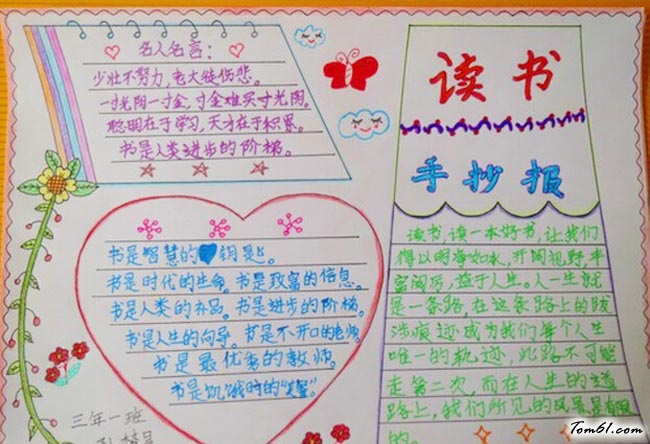 名人名言：
少壮不努力，老大徒伤悲。
一寸光阴一寸金，寸金难买寸光阴。
聪明在于学习，天才在于积累。
书是人类进步的阶梯。
读书
手抄报
书是智慧的钥匙。
书是时代的生命。书是致富的信息。
书是人类的礼品。书是进步的阶梯。
书是人生的向导。书是不开口的老师。
书是最优秀的教师。
书是饥饿时的
三年一班
读书，读一本好书，让我们
得以明净如水，开阔视野，丰
富阅历，益于人生。人一生就
是一条路，在这条路上的跋
涉痕迹成为我们每个人生
唯一的轨迹，此路不可能
走第二次，而在人生的道
路上，我们所见的风景是有限
的。
Tom61.com